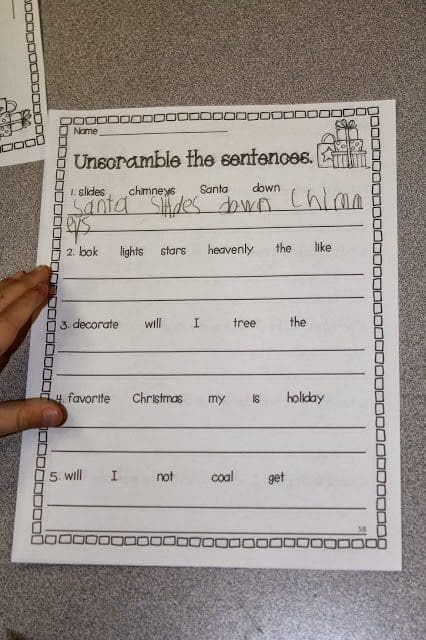 Name
Unscramble the sentences.
1. slides chimneys Santa down
Santa slides down Chimn
eys
2. look lights stars heavenly the like
3. decorate will I tree the
4. favorite Christmas my is holiday
5. will I not coal get
58